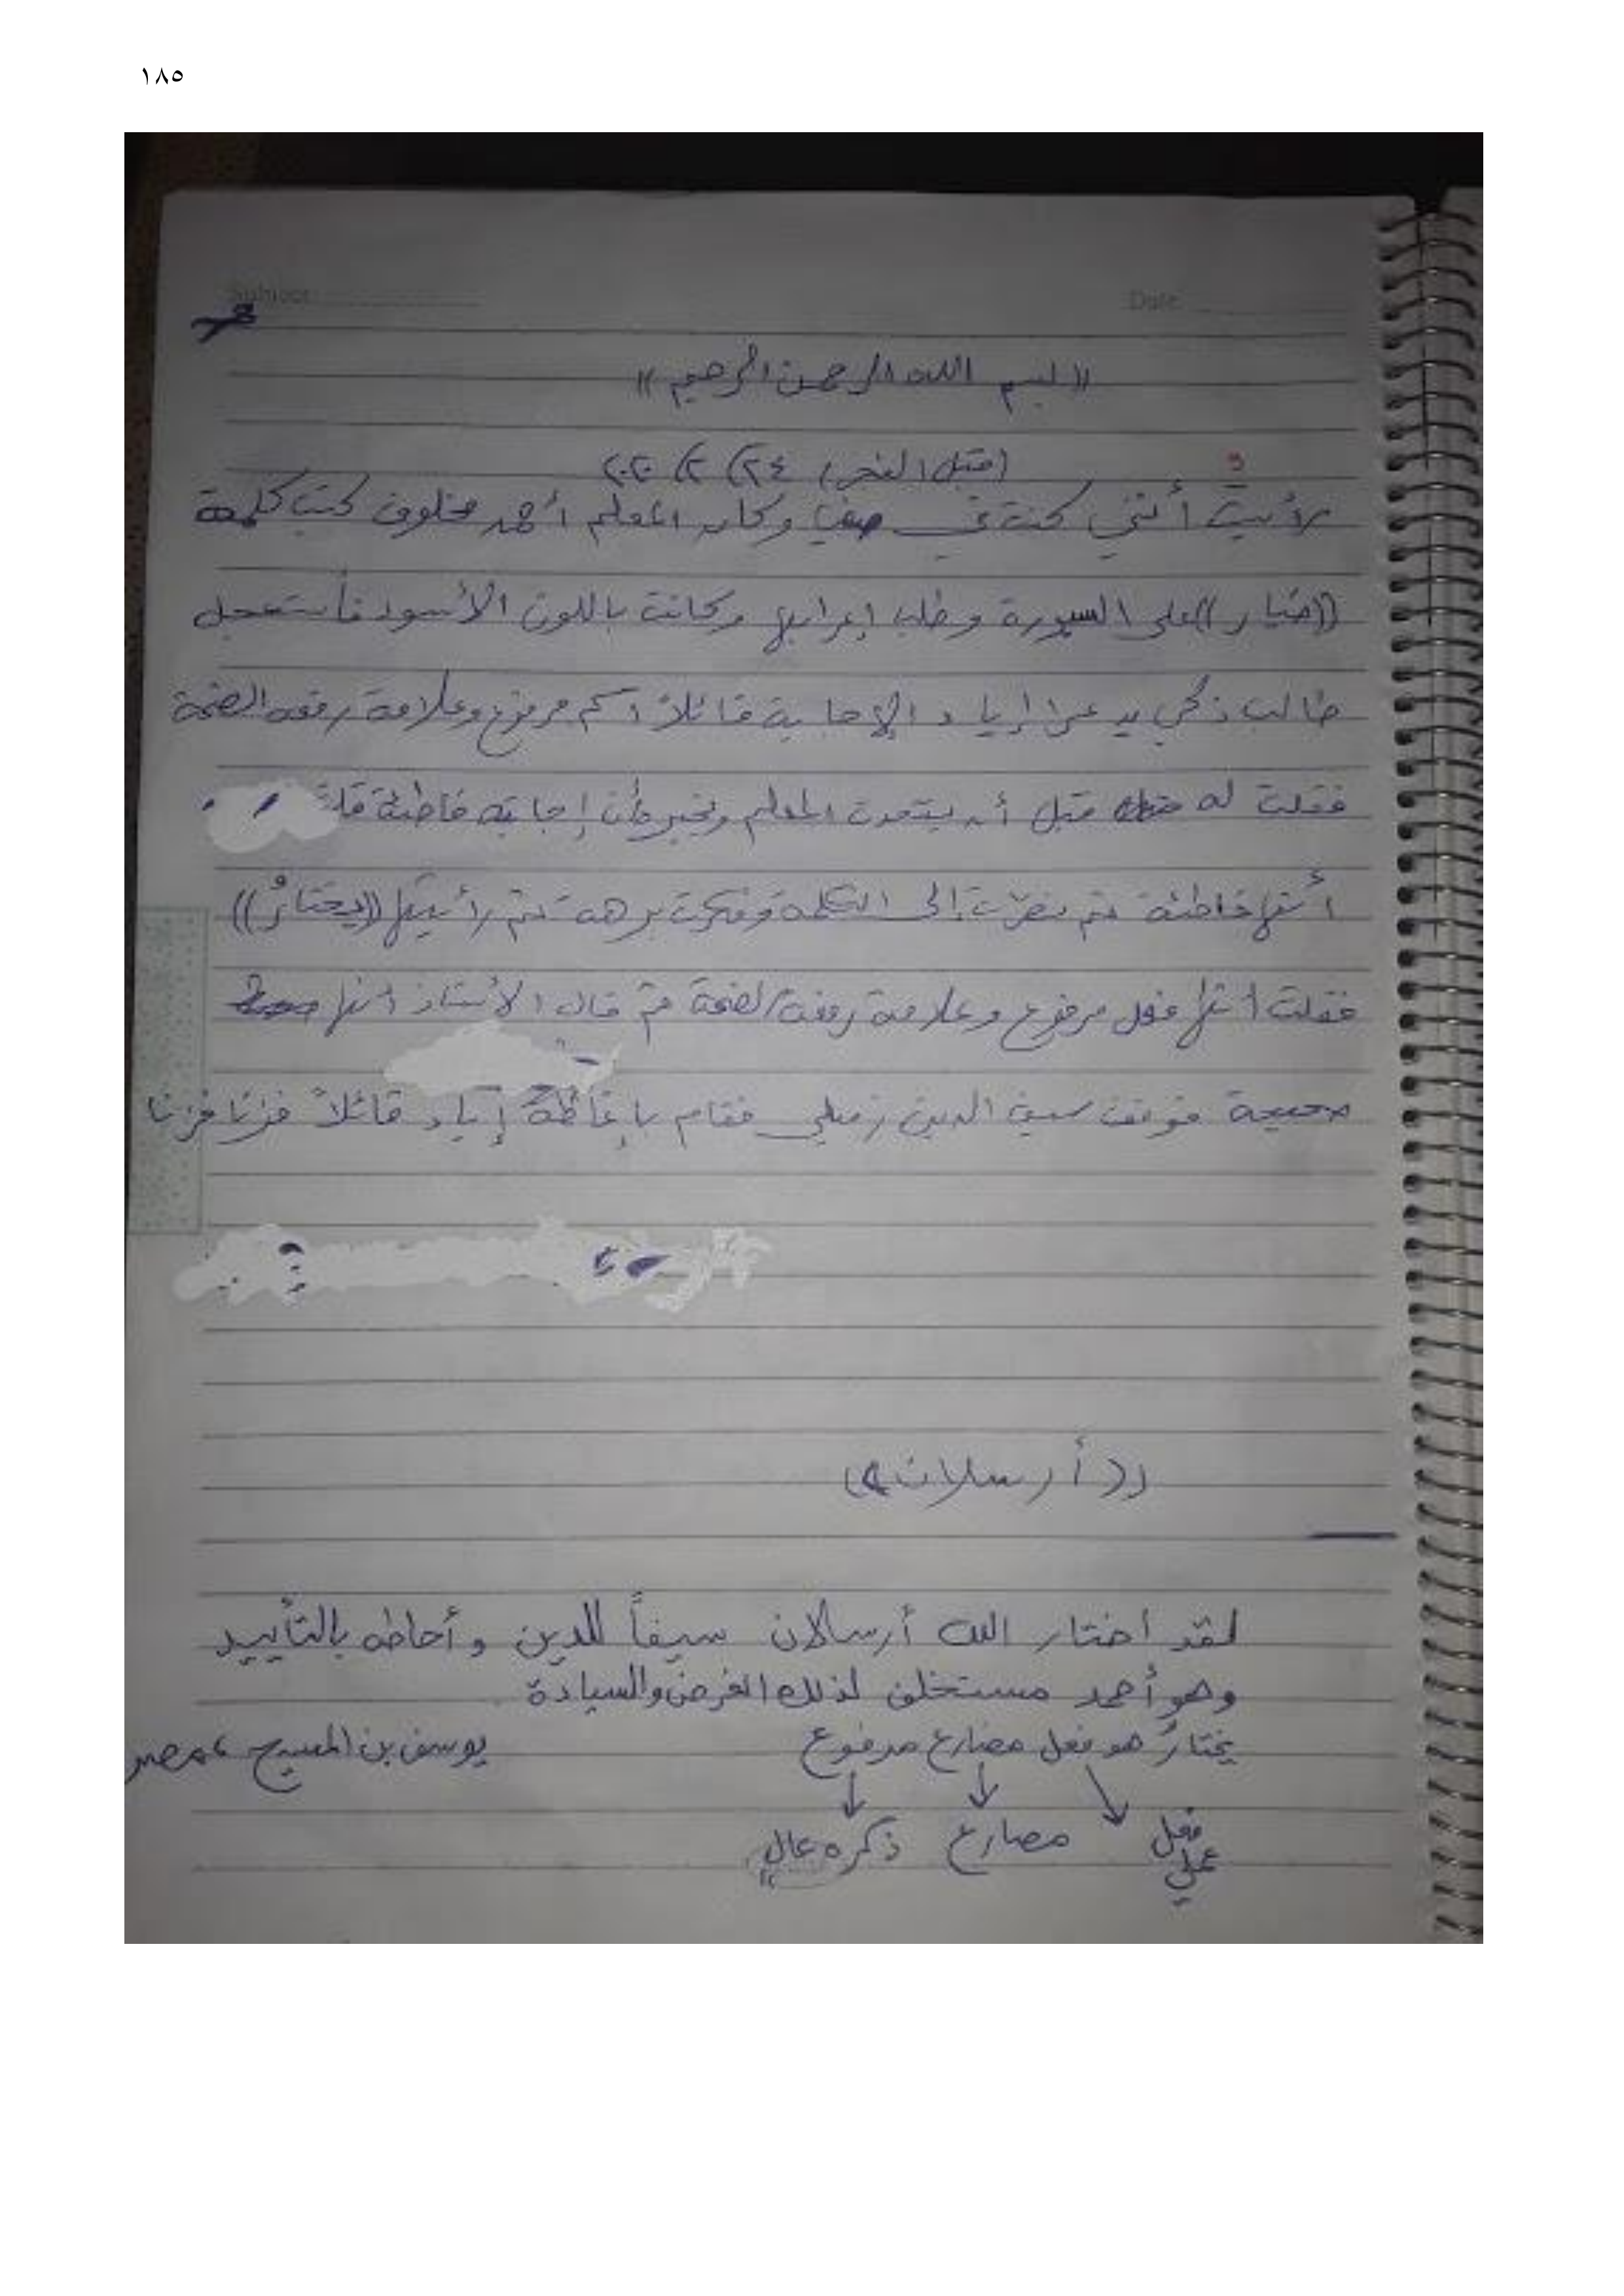 ١٨٥
Subject
Date
((بسم الله الرحمن الرحيم))
(قبل الفجر) ٢٤ / ٢ / ٢٠٢٠
رأيت أنني كنت في صفي وكان المعلم أحمد مخلوف كتب كلمة
((خيار)) على السبورة وطلب إعرابها وكانت باللون الأسود فأستعجل
طالب ذكي يدعى إياد الإجابة قائلاً اسم مرفوع وعلامة رفعه الضمة
فقلت له قبل أن يتحدث المعلم ويخبره أن إجابته خاطئة قلت
أنها خاطئة ثم نظرت إلى الكلمة وفكرت برهة ثم رأيتها ((يختارُ))
فقلت أنها فعل مرفوع وعلامة رفعه الضمة ثم قال الأستاذ أنها
صحيحة فوقف سيف الدين زميلي فقام بإغاظة إياد قائلاً فزنا فزنا
((أرسلان))
لقد اختار الله أرسلان سيفاً للدين وأحاطه بالتأييد
وهو أحمد مستخلف لذلك الغرض والسيادة
يختارُ هو فعل مضارع مرفوع يوسف بن المسيح، مصر
فعل مضارع ذكره عالٍ
عملي